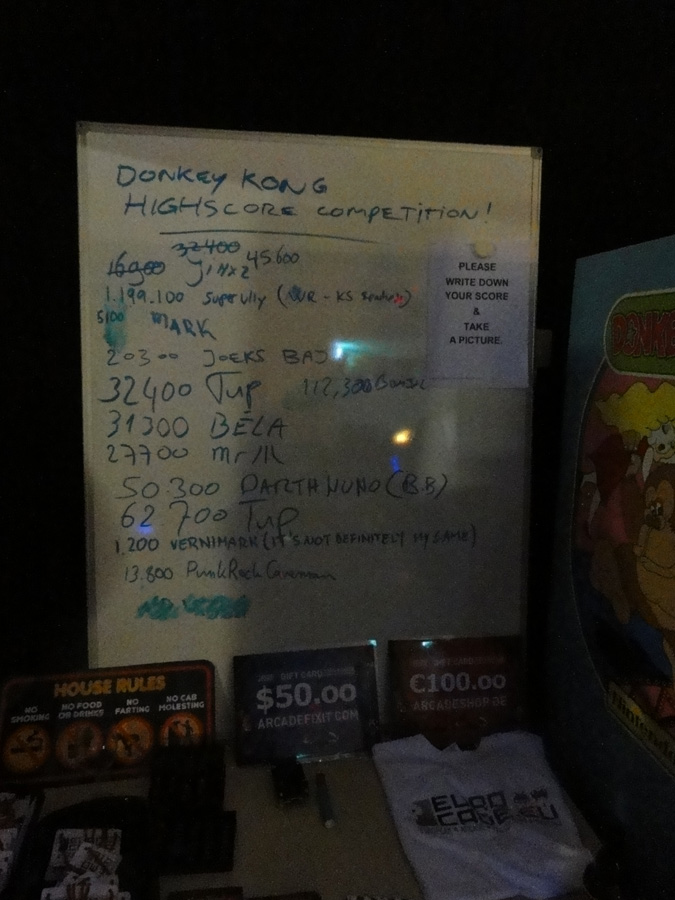 DONKEY KONG
HIGHSCORE COMPETITION!
32400
16900 JINX2 45.600
1.199.100 superully (WR - KS
5100 MARK
20300 JOEKS BAJ
32400 Tup 112,300
31300 BÉLA
27700
50.300 DARTH NUNO (B.B)
62 700 Tup
1.200 VERNIMARK (IT'S NOT DEFINITELY MY GAME)
13.800 PunkRockCaveman
PLEASE
WRITE DOWN
YOUR SCORE
&
TAKE
A PICTURE.
HOUSE RULES
NO SMOKING
NO FOOD OR DRINKS
NO FARTING
NO CAB MOLESTING
GIFT CARD
$50.00
ARCADEFIXIT.COM
GIFT CARD
€100.00
ARCADESHOP.DE